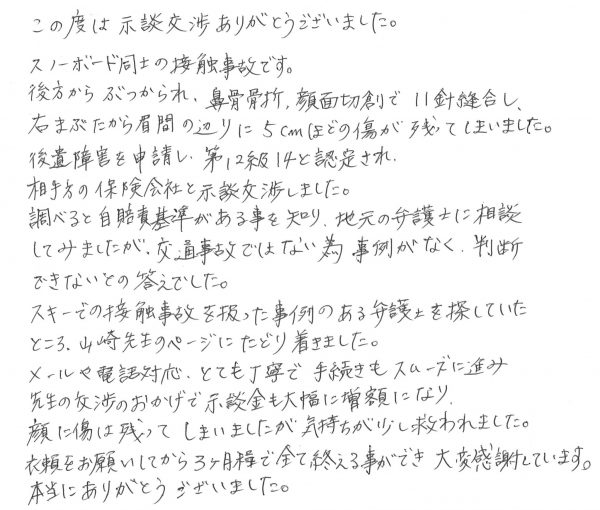 この度は示談交渉ありがとうございました。
スノーボード同士の接触事故です。
後方からぶつかられ、鼻骨骨折,顔面切創で11針縫合し、
右まぶたから眉間の辺りに5cmほどの傷が残ってしまいました。
後遺障害を申請し、第12級14と認定され、
相手方の保険会社と示談交渉しました。
調べると自賠責基準がある事を知り、地元の弁護士に相談
してみましたが、交通事故ではない為 事例がなく、判断
できないとの答えでした。
スキーでの接触事故を扱った事例のある弁護士を探していた
ところ、山﨑先生のページにたどり着きました。
メールや電話対応、とても丁寧で手続きもスムーズに進み
先生の交渉のおかげで示談金も大幅に増額になり、
顔に傷は残ってしまいましたが気持ちが少し救われました。
依頼をお願いしてから3ヶ月程で全て終える事ができ 大変感謝しています。
本当にありがとうございました。